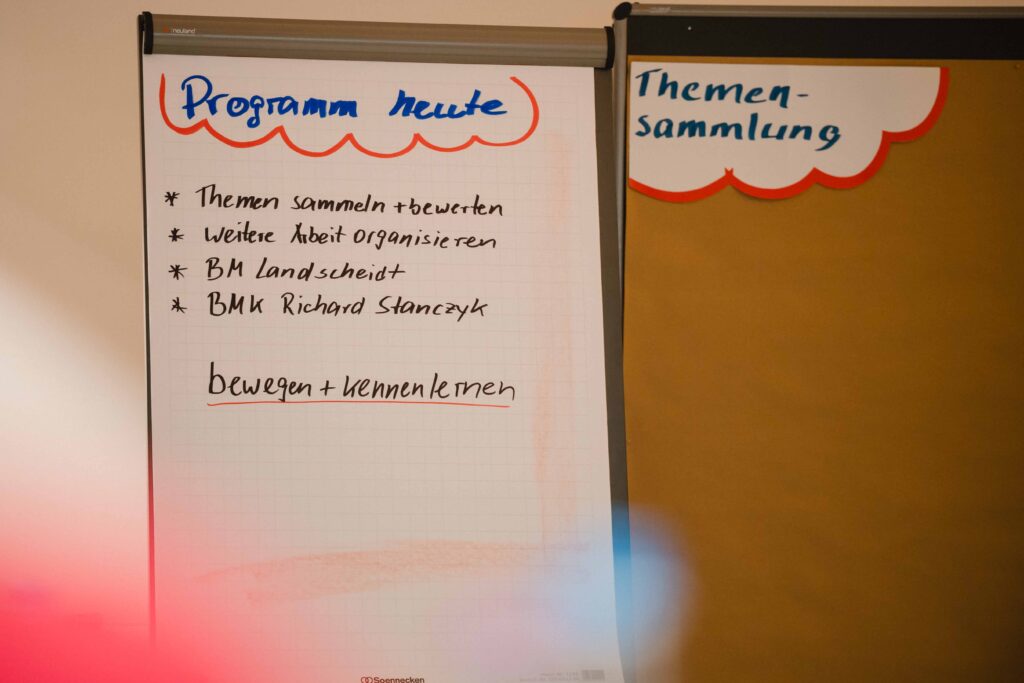 neuland
Programm heute
* Themen sammeln + bewerten
* Weitere Arbeit organisieren
* BM Landscheidt
* BMK Richard Stanczyk
bewegen + kennenlernen
Soennecken
Themen-
sammlung